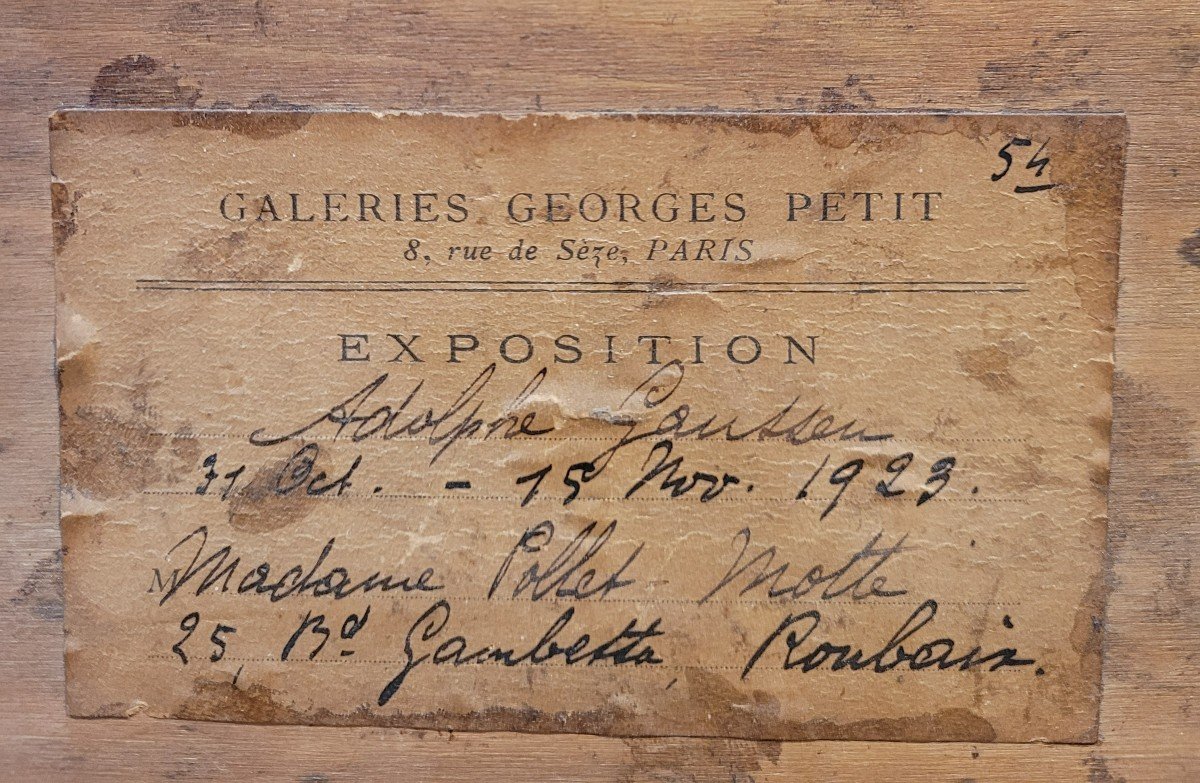 54
GALERIES GEORGES PETIT
8, rue de Sèze, PARIS
EXPOSITION
Adolphe Gaussen
31 Oct. - 15 Nov. 1923.
M Madame Pollet-Motte
25, Bd Gambetta, Roubaix.